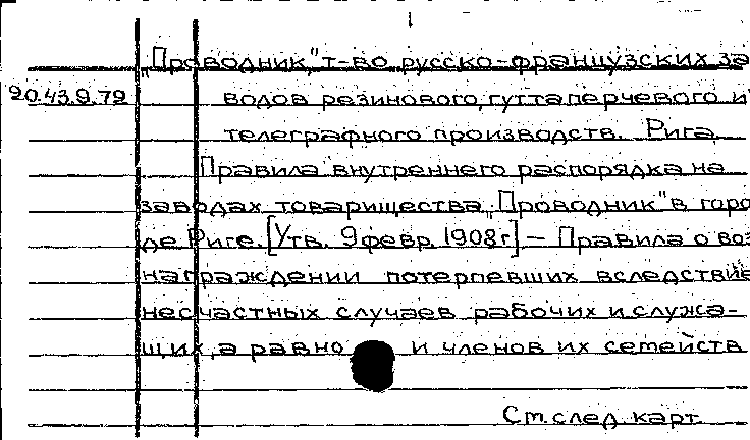 „Проводник", т-во русско-французских за-
20.43.9.72 водов резинового, гуттаперчевого и
телеграфного производств. Рига.
Правила внутреннего распорядка на
заводах товарищества „Проводник" в горо-
де Риге. [Утв. 9 февр. 1908г.] – Правила о воз-
награждении потерпевших вследствие
несчастных случаев рабочих и служа-
щих, а равно и членов их семейств
См. след. карт.